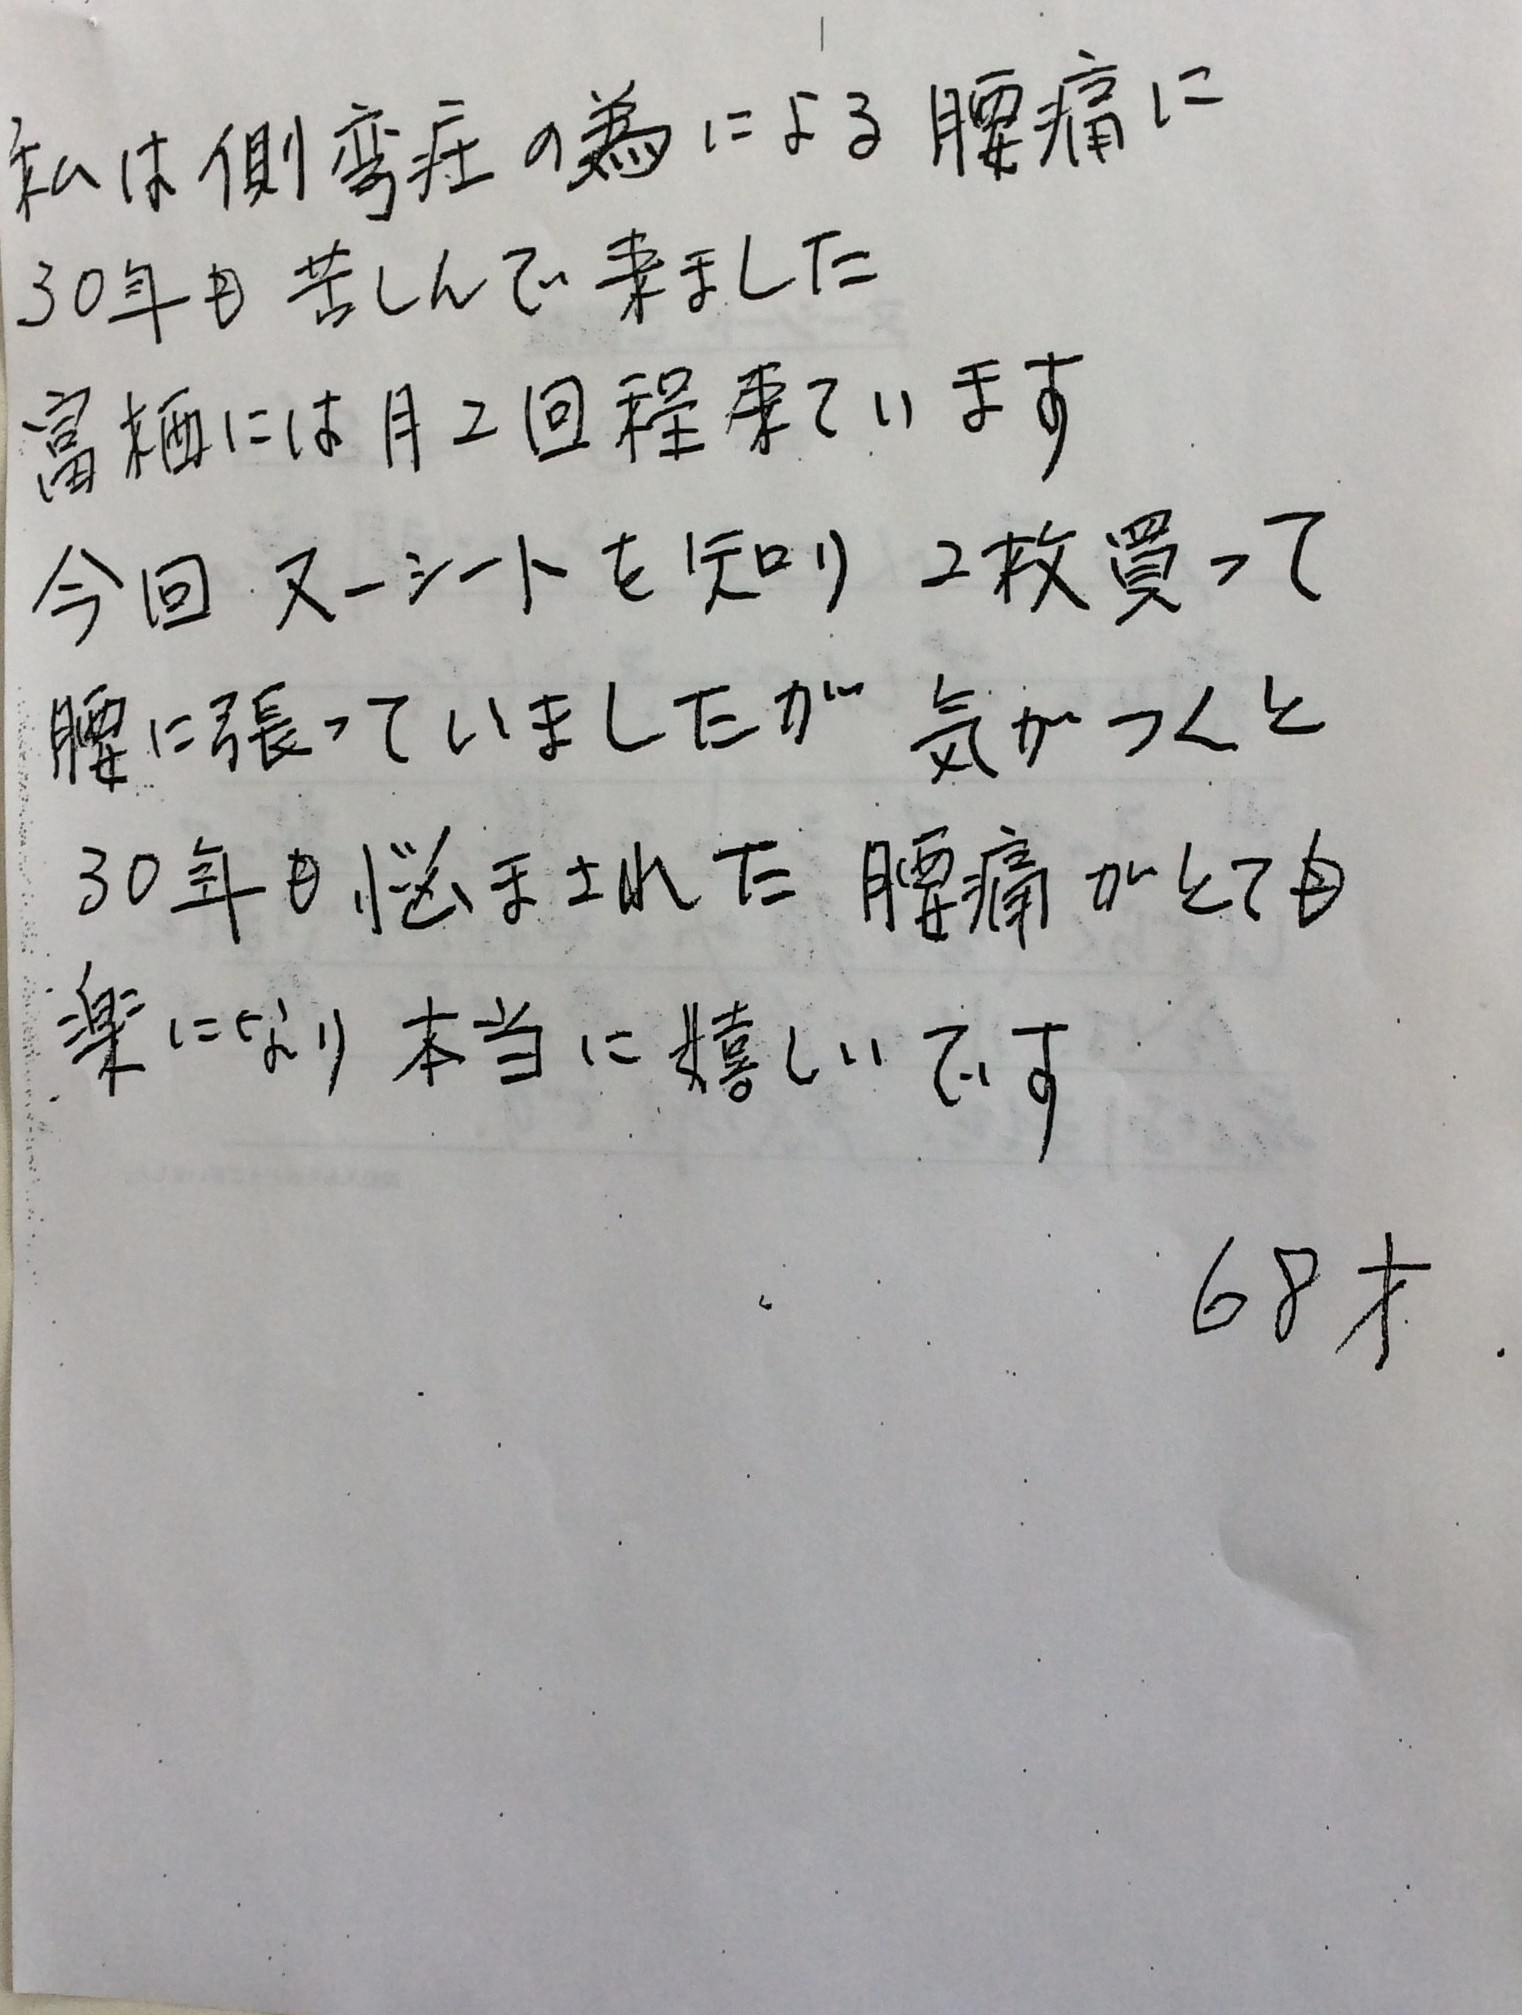 私は側弯症の為による腰痛に
30年も苦しんで来ました
富栖には月2回程来ています
今回ヌーシートを知り 2枚買って
腰に張っていましたが 気がつくと
30年も悩まされた 腰痛がとても
楽になり 本当に嬉しいです
68才